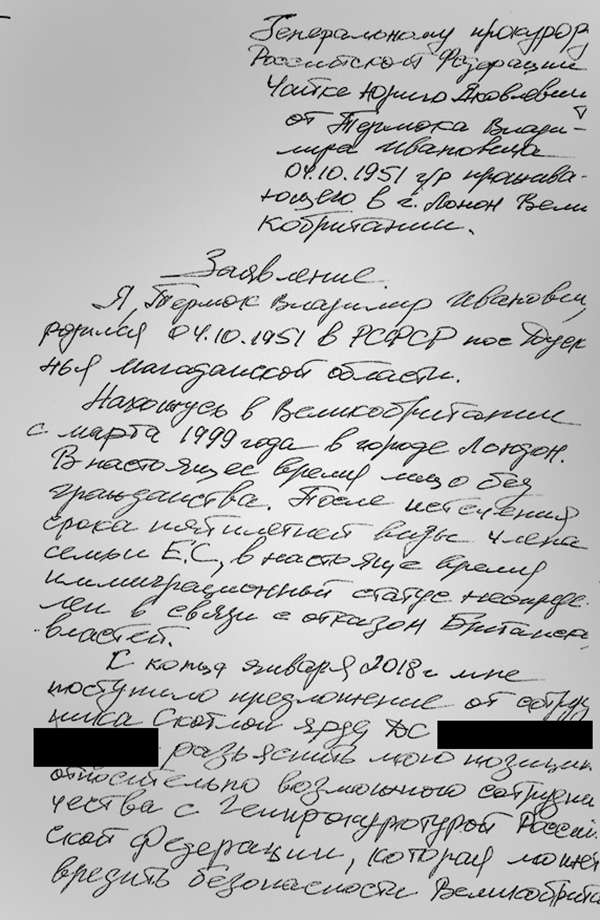 Генеральному прокурору
Российской Федерации
Чайке Юрию Яковлевичу
от Термока Влади-
мира Ивановича
04.10.1951 г/р прожива-
ющего в г. Лонон Вели
кобритании.
Заявление.
Я, Термок Владимир Иванович,
родился 04.10.1951 в РСФСР пос
нья Магаданской области.
Нахожусь в Великобритании
с марта 1999 года в городе Лондон.
В настоящее время лицо без
гражданства. После истечения
срока пятилетней визы члена
семьи Е.С, в настояще время
иммиграционный статус неопреде-
лен в связи с отказом Британск
властей.
С конца января 2018 г мне
поступило предложение от сотруд
ника Скотлон ярда ДС
разъяснить мою позицию
относительно возможного сотрудни
чества с Генпрокуратурой Россий
ской Федерации, которая может
вредить безопасности Великобрита